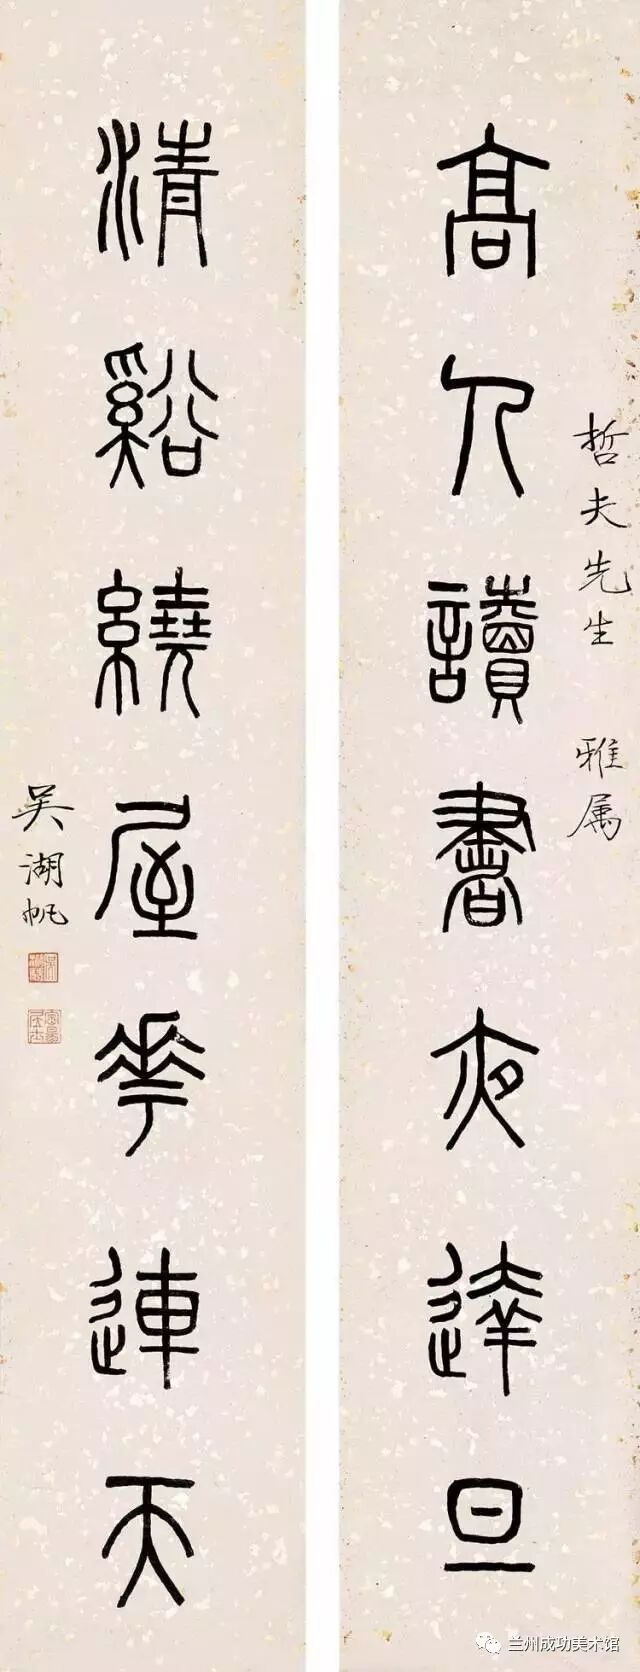 哲夫先生 雅属
高人讀書夜達旦
清谿繞屋花連天
吴湖帆
兰州成功美术馆